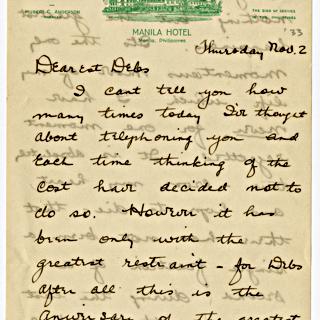 MONROE C. ANDERSON
MANAGER
THE SIGN OF SERVICE
IN THE PHILIPPINES
MANILA HOTEL
Manila, Philippines
'33
Thursday Nov. 2
Dearest Debs
I cant tell you how
many times today I've thought
about telephoning you and
each time thinking of the
cost have decided not to
do so. However it has
been only with the
greatest restraint - for Debs
after all this is the
of the greatest